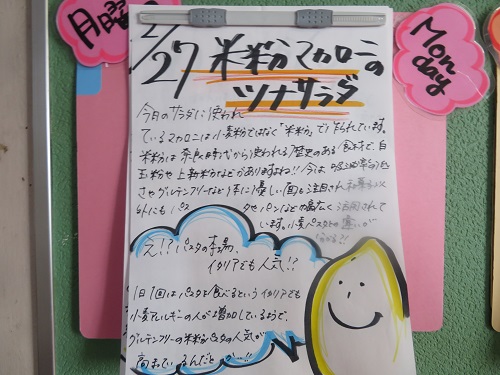 月曜
Monday
2/27 米粉マカロニの
ツナサラダ
今日のサラダに使われ
ているマカロニは小麦粉ではなく「米粉」で作られています。
米粉は奈良時代から使われる歴史のある食材で、白
玉粉や上新粉などがありますよね!!今は吸油率の低
さやグルテンフリーなど体に優しい面も注目され、和菓子以
外にもパスタやパンなど幅広く活用されて
います。小麦パスタとの違いが
え!?パスタの本場
イタリアでも人気!?
1日1回はパスタを食べるというイタリアでも
小麦アレルギーの人が増加しているようで、
グルテンフリーの米粉パスタの人気が
高まっているんだとか…!!